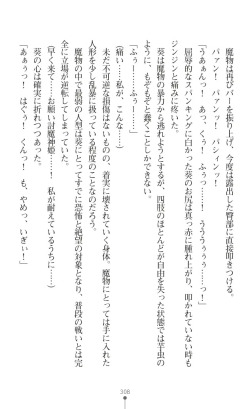 魔物は再びバーを振り上げ、今度は露出した臀部に直接叩きつける。
パアン！　パアンッ！　バシィンッ！
「うあぁんっ！　あっ、くぅ！　ふぅっ……！　うううぅぅぅ……っ！」
屈辱的なスパンキングに白かった葵のお尻は真っ赤に腫れ上がり、叩かれていない時も
ジンジンと痛みに疼いた。
葵は魔物の暴力から逃れようとするが、四肢のほとんどが自由を失った状態では芋虫の
ように、もぞもぞと蠢くことしかできない。
「ふぅー……ふぅー……っ！」
（痛い……私が、こんな……！）
未だ不可逆な損傷はないものの、着実に壊されていく身体。魔物にとっては手に入れた
人形を少し乱暴に扱っている程度のことなのだろう。
魔物の中で最弱の人型は葵にとってすでに恐怖と絶望の対象となり、普段の戦いとは完
全に立場が逆転してしまっていた。
（早く来て……お願い討魔神姫……！　私が耐えているうちに……！）
葵の心は確実に折れつつあった。
「あぁぅっ！　はぐぅ！　くんっ！　も、やめっ、いぎぃ！」
308